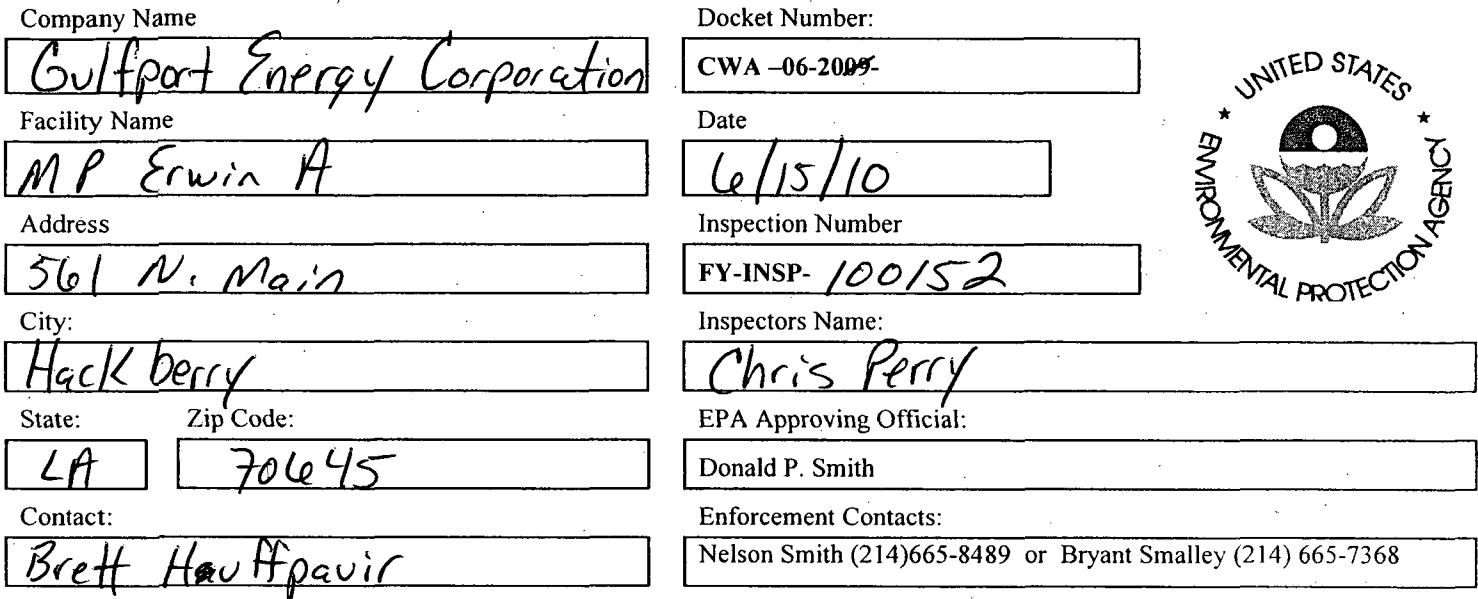 Company Name
Gulfport Energy Corporation
Facility Name
MP Erwin A
Address
561 N. Main
City:
Hackberry
State: Zip Code:
LA 70645
Contact:
Brett
Docket Number:
CWA –06-2009-
Date
6/15/10
Inspection Number
FY-INSP- 100152
Inspectors Name:
Chris Perry
EPA Approving Official:
Donald P. Smith
Enforcement Contacts:
Nelson Smith (214)665-8489 or Bryant Smalley (214) 665-7368
UNITED STATES
ENVIRONMENTAL PROTECTION AGENCY